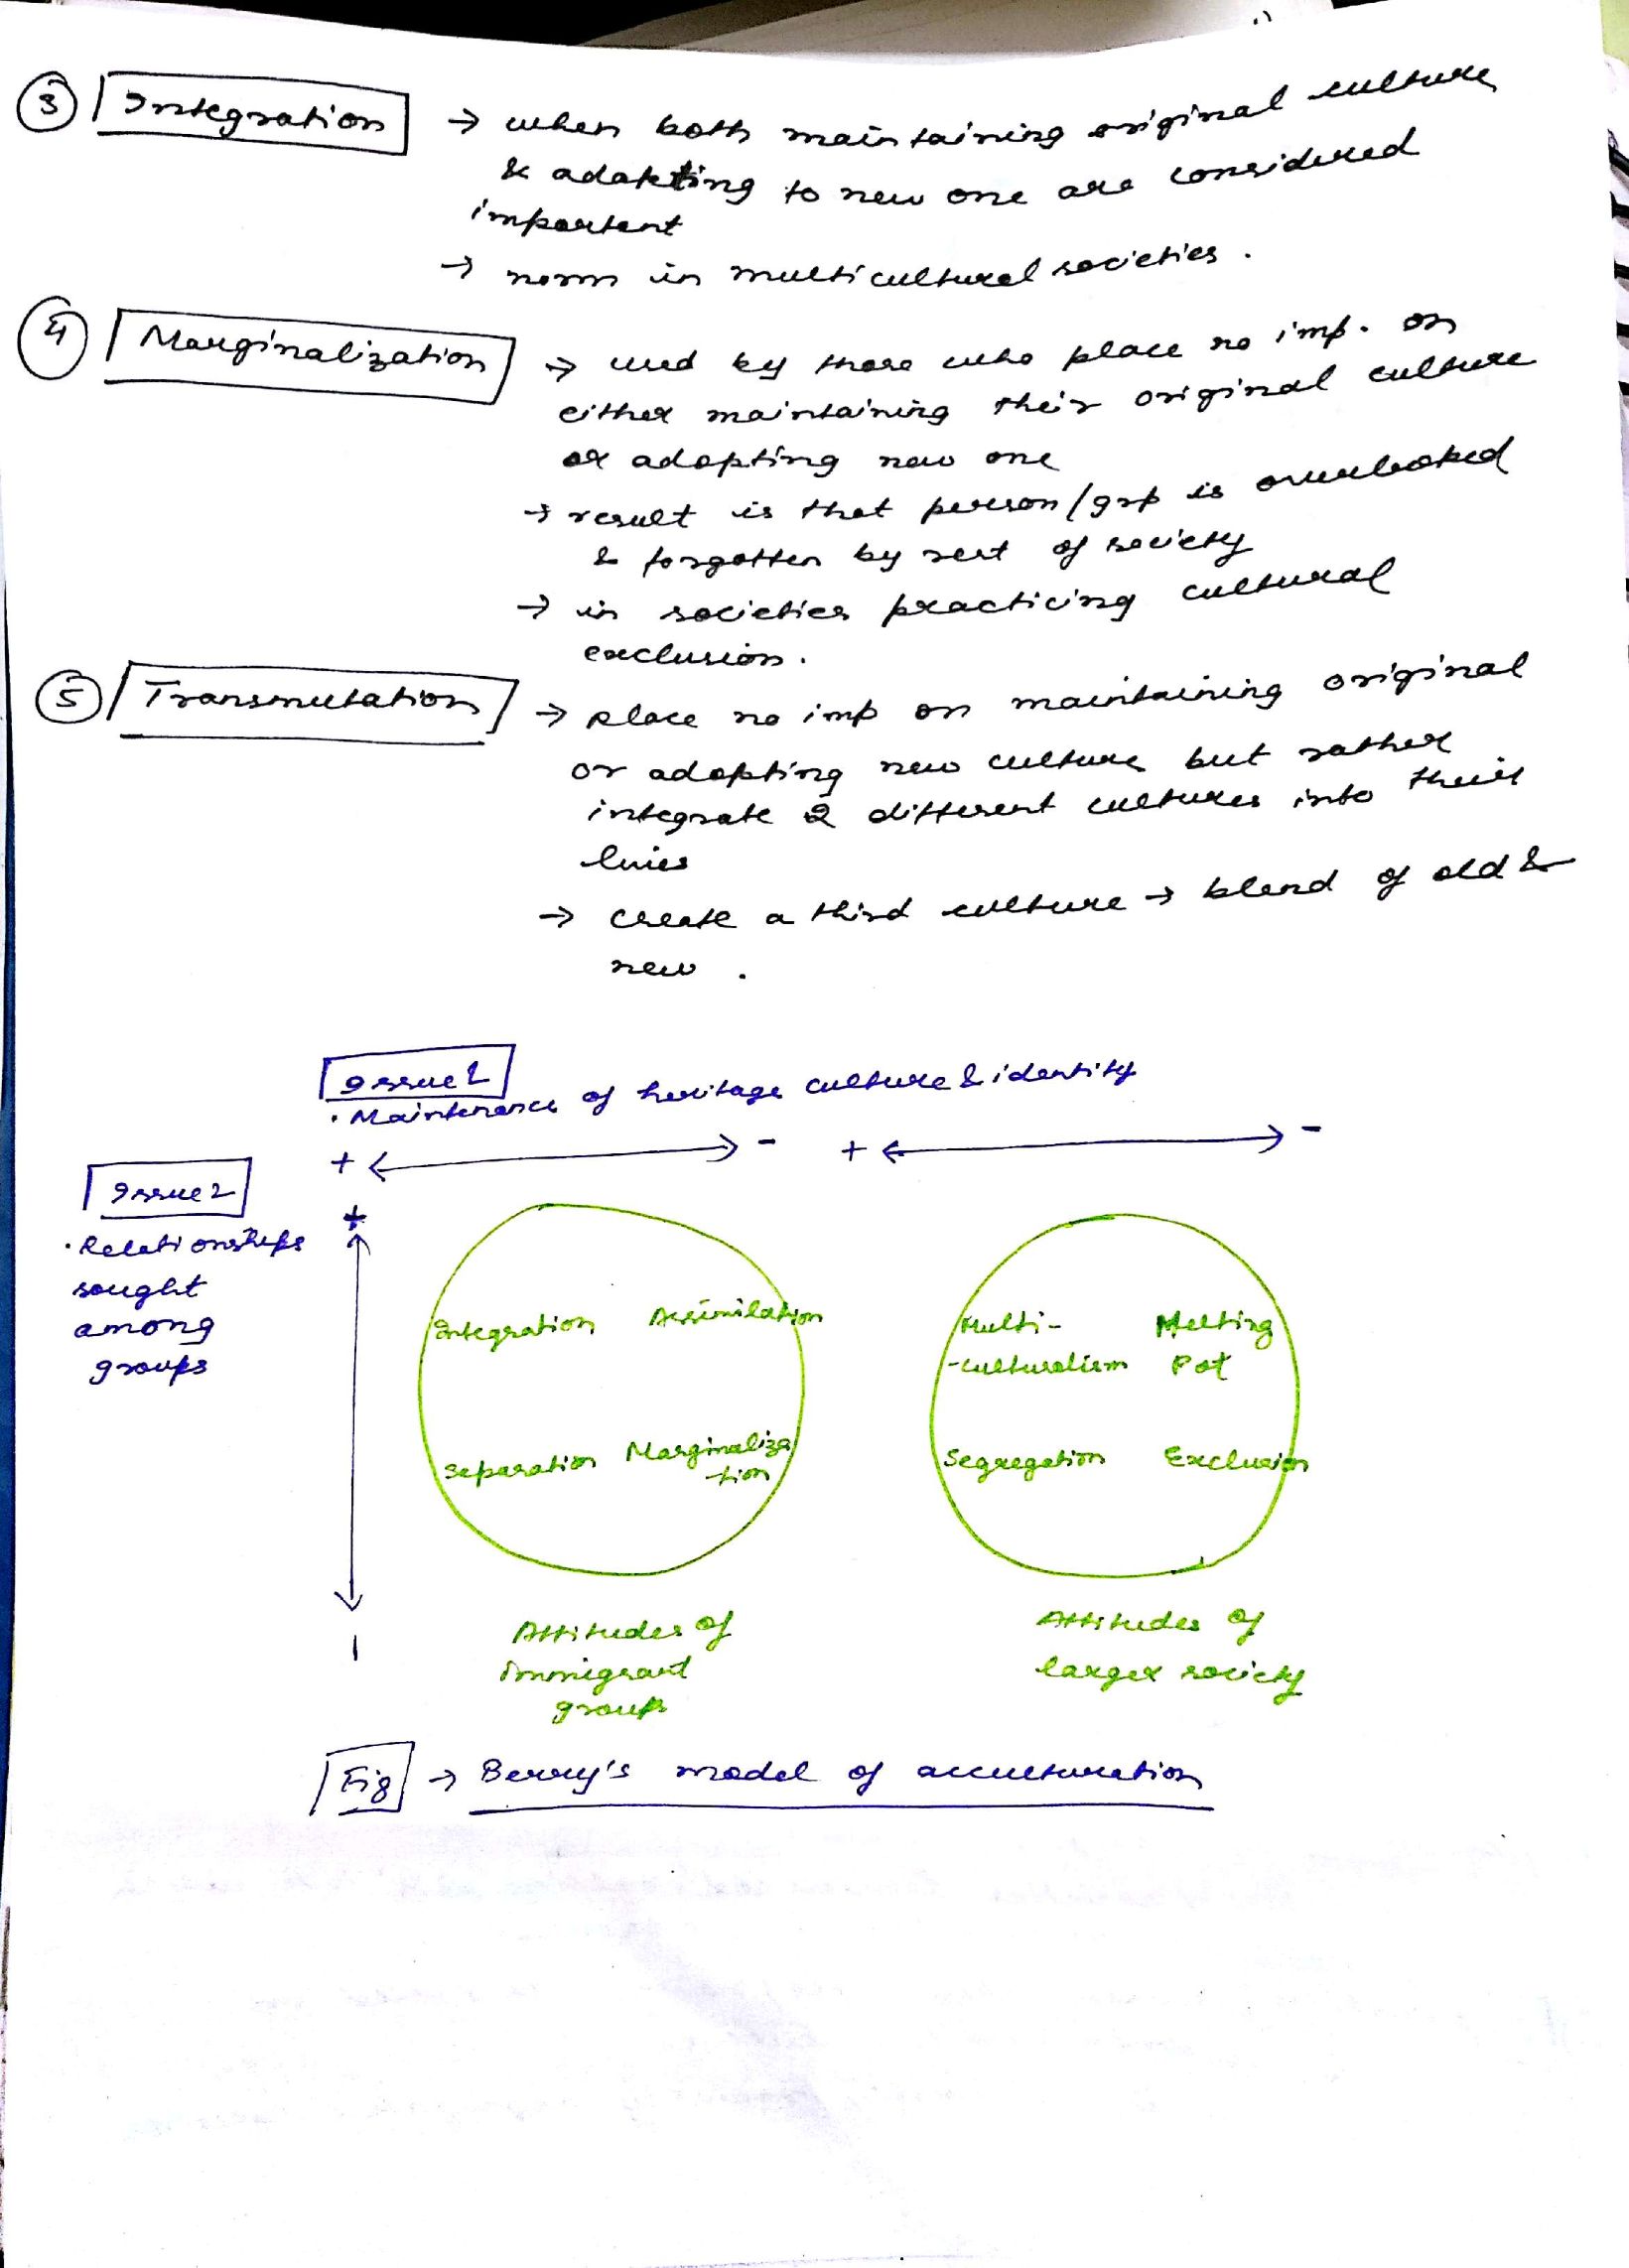 ③ Integration → when both maintaining original culture
& adapting to new one are considered
important
→ norm in multicultural societies.
④ Marginalization → used by those who place no imp. on
either maintaining their original culture
or adopting new one
→ result is that person/grp is overlooked
& forgotten by rest of society
→ in societies practicing cultural
exclusion.
⑤ Transmutation → place no imp on maintaining original
or adopting new culture but rather
integrate 2 different cultures into their
lives
→ create a third culture → blend of old &
new.
Issue 1
• Maintenance of heritage culture & identity
+ ↔ - + ↔ -
Issue 2
• Relationships
sought
among
groups
+
Integration Assimilation
Separation Marginaliza
-tion
Multi- Melting
-culturalism Pot
Segregation Exclusion
-
Attitudes of
Immigrant
groups
Attitudes of
larger society
Fig → Berry's model of acculturation